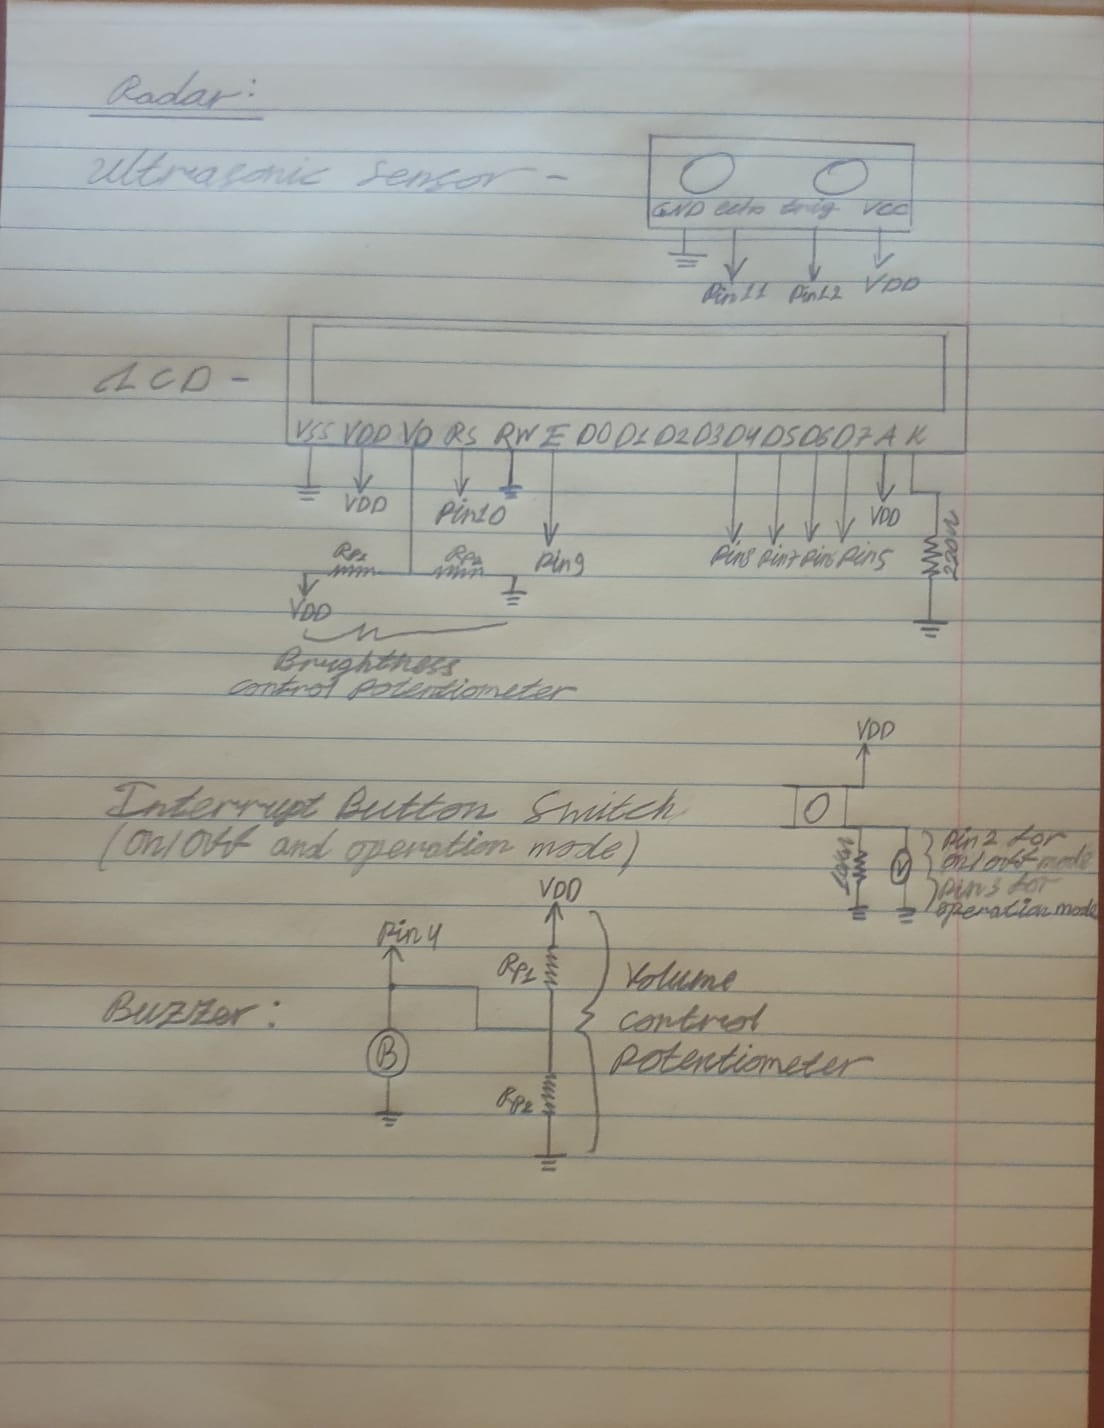 Radar:
Ultrasonic Sensor -
GND echo trig VCC
Pin11 Pin12 VDD
LCD -
VSS VDD VO RS RW E D0 D1 D2 D3 D4 D5 D6 D7 A K
VDD Pin10 VDD
Pin9 Pin8 Pin7 Pin6 Pin5
220Ω
VDD
Brightness
control potentiometer
VDD
Interrupt Button Switch
(On/Off and operation mode)
10kΩ
V
Pin2 for
on/off mode
Pin3 for
operation mode
VDD
Pin4
RP1
Buzzer:
B
RP2
Volume
control
potentiometer